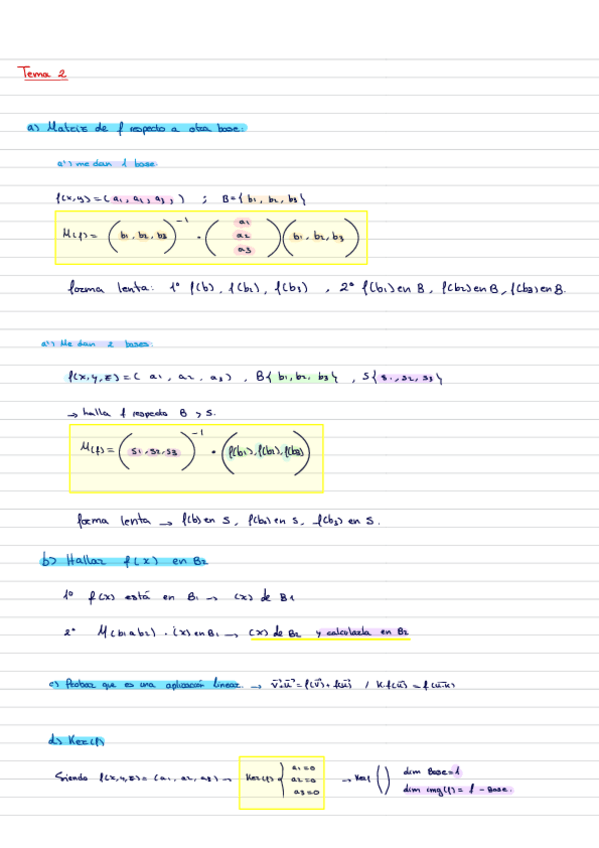 Tema 2
a) Matriz de f respecto a otra base:
a') me dan 1 base.
f(x,y) = (a1, a2, a3) ; B = { b1, b2, b3 }
M(f) = ( b1, b2, b3 )^-1 · ( a1 a2 a3 ) ( b1, b2, b3 )
forma lenta: 1º f(b), f(b2), f(b3) , 2º f(b1) en B, f(b2) en B, f(b3) en B.
a'') Me dan 2 bases.
f(x,y,z) = ( a1, a2, a3 ) , B{ b1, b2, b3 } , S{ s1, s2, s3 }
→ halla f respecto B y S.
M(f) = ( s1, s2, s3 )^-1 · ( f(b1), f(b2), f(b3) )
forma lenta → f(b) en S, f(b2) en S, f(b3) en S.
b) Hallar f(x) en B2
1º f(x) está en B1 → (x) de B1
2º M(b1 a b2) · (x) en B1 → (x) de B2 y calcularla en B2
c) Probar que es una aplicación lineal. → v⃗+u⃗ = f(v⃗) + f(u⃗) / K·f(u⃗) = f(u⃗·k)
d) Ker(f)
Siendo f(x,y,z) = (a1, a2, a3) → Ker(f) { a1=0 a2=0 a3=0 → Ker ( ) dim Base = 1
dim img(f) = 1 - Base.